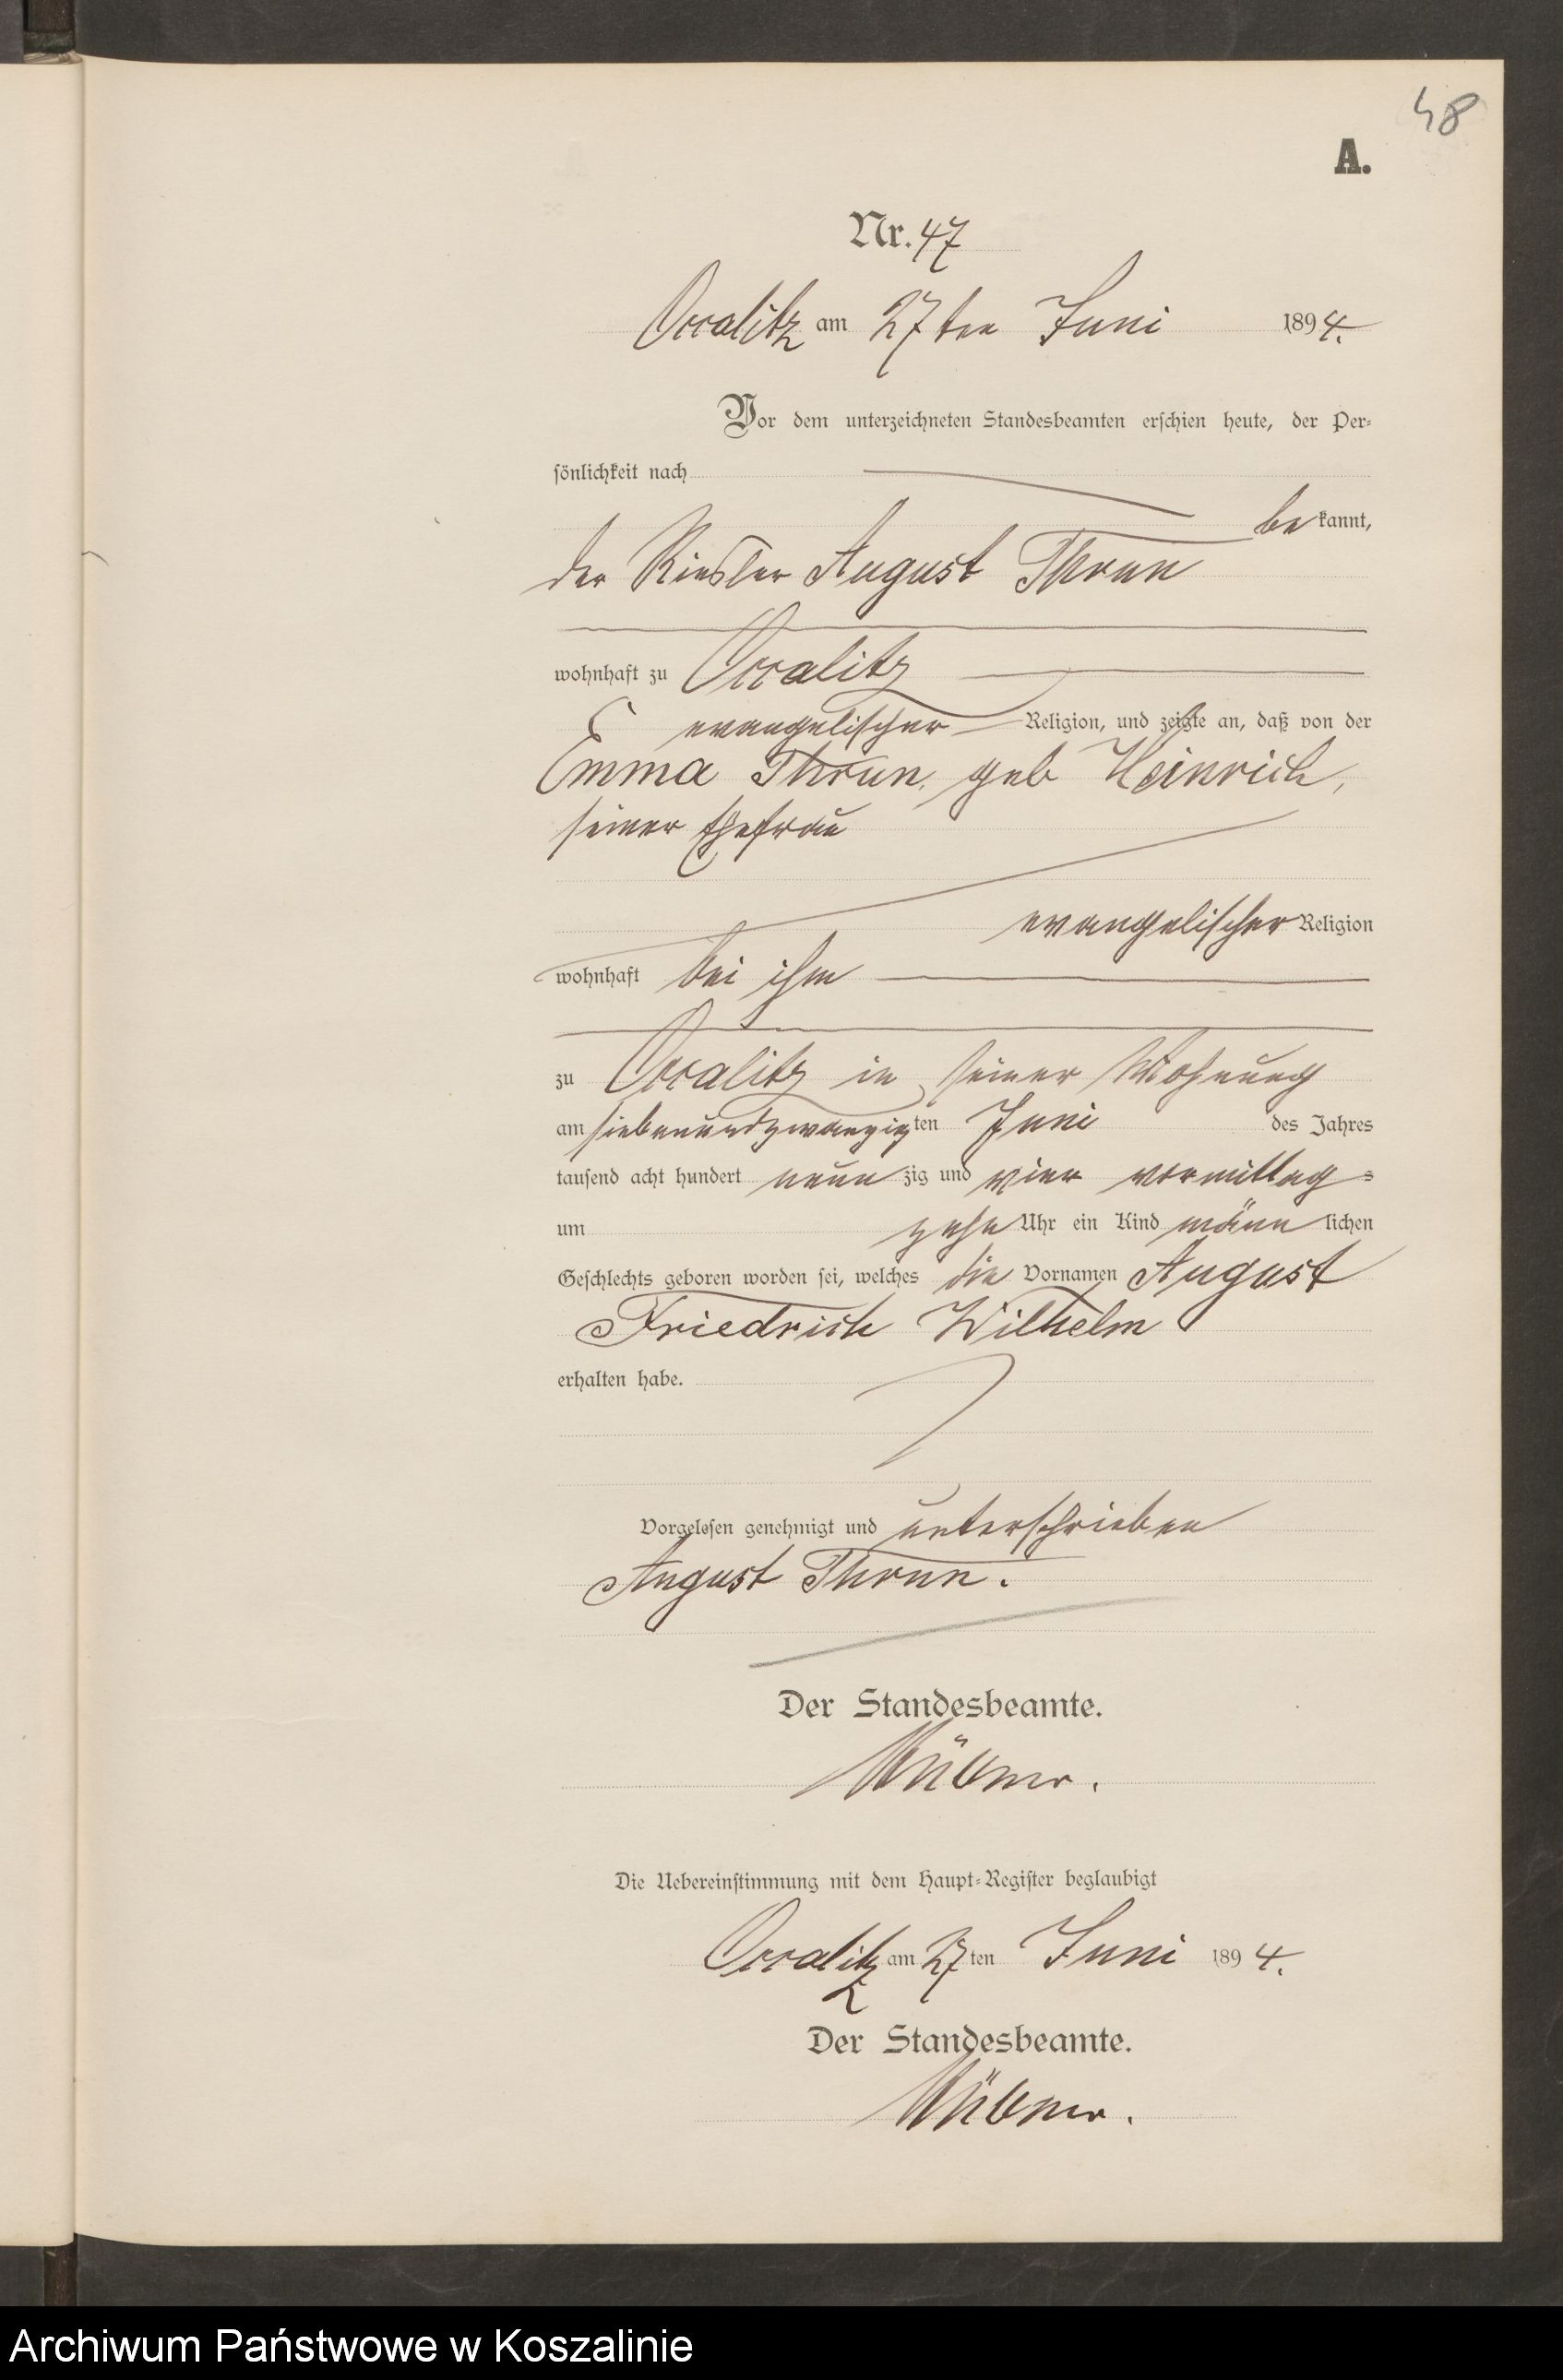 48
A.
Nr. 47
Occalitz am 27ten Juni 1894.
Vor dem unterzeichneten Standesbeamten erschien heute, der Per-
sönlichkeit nach
be kannt,
der August Thrun
wohnhaft zu Occalitz
evangelischer Religion, und zeigte an, daß von der
Emma Thrun, geb Heinrich,
seiner Ehefrau
evangelischer Religion
wohnhaft bei ihm
zu Occalitz in seiner Wohnung
am siebenundzwanzigten Juni des Jahres
tausend acht hundert neun zig und vier vormittag-
um zehn Uhr ein Kind männ lichen
Geschlechts geboren worden sei, welches die Vornamen August
Friedrich Wilhelm
erhalten habe.
Vorgelesen genehmigt und unterschrieben
August Thrun.
Der Standesbeamte.
Die Uebereinstimmung mit dem Haupt-Register beglaubigt
Occalitz am 27 ten Juni 1894.
Der Standesbeamte.
Archiwum Państwowe w Koszalinie